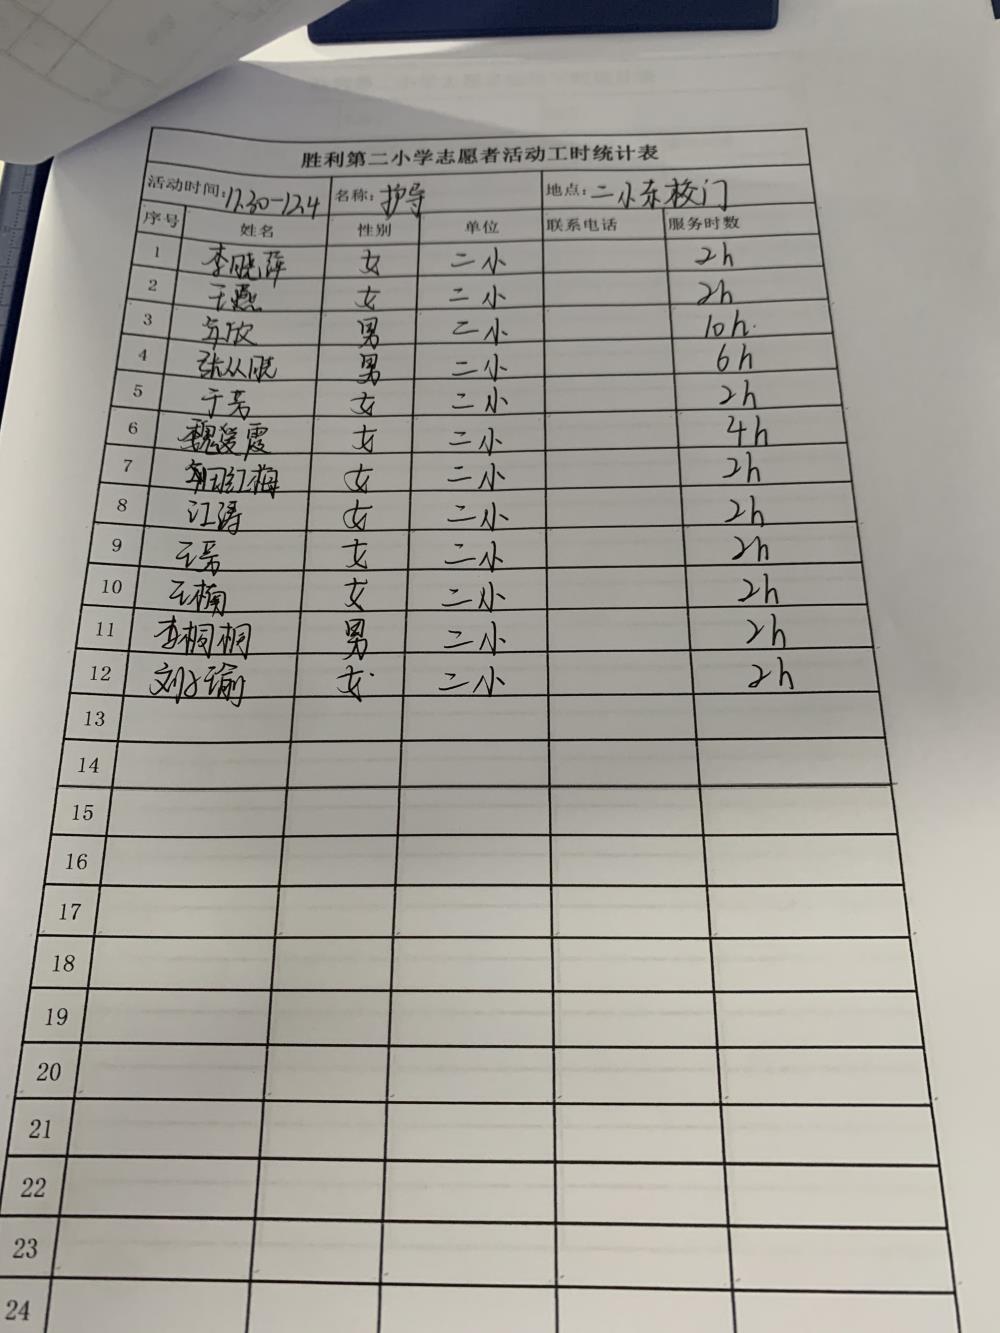 胜利第二小学志愿者活动工时统计表
活动时间:11.30-12.4 名称:护导 地点:二小东校门
序号 姓名 性别 单位 联系电话 服务时数
1 李晓萍 女 二小 2h
2 王燕 女 二小 2h
3 欣 男 二小 10h
4 张从晓 男 二小 6h
5 于芳 女 二小 2h
6 魏爱霞 女 二小 4h
7 红梅 女 二小 2h
8 江涛 女 二小 2h
9 王芳 女 二小 2h
10 王楠 女 二小 2h
11 李桐桐 男 二小 2h
12 刘子瑜 女 二小 2h
13
14
15
16
17
18
19
20
21
22
23
24